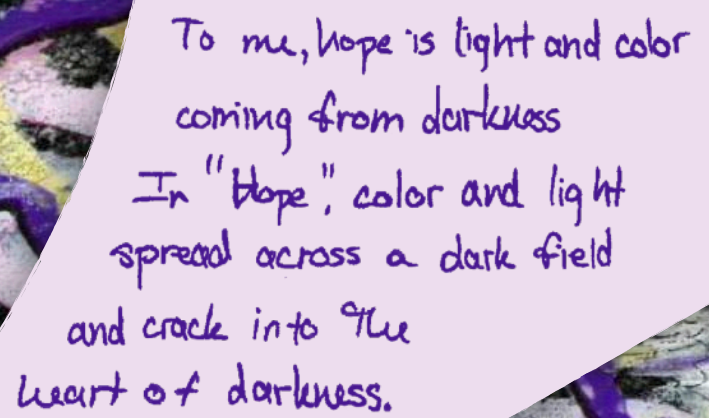 To me, hope is light and color
coming from darkness
In "Hope", color and light
spread across a dark field
and crack into the
heart of darkness.